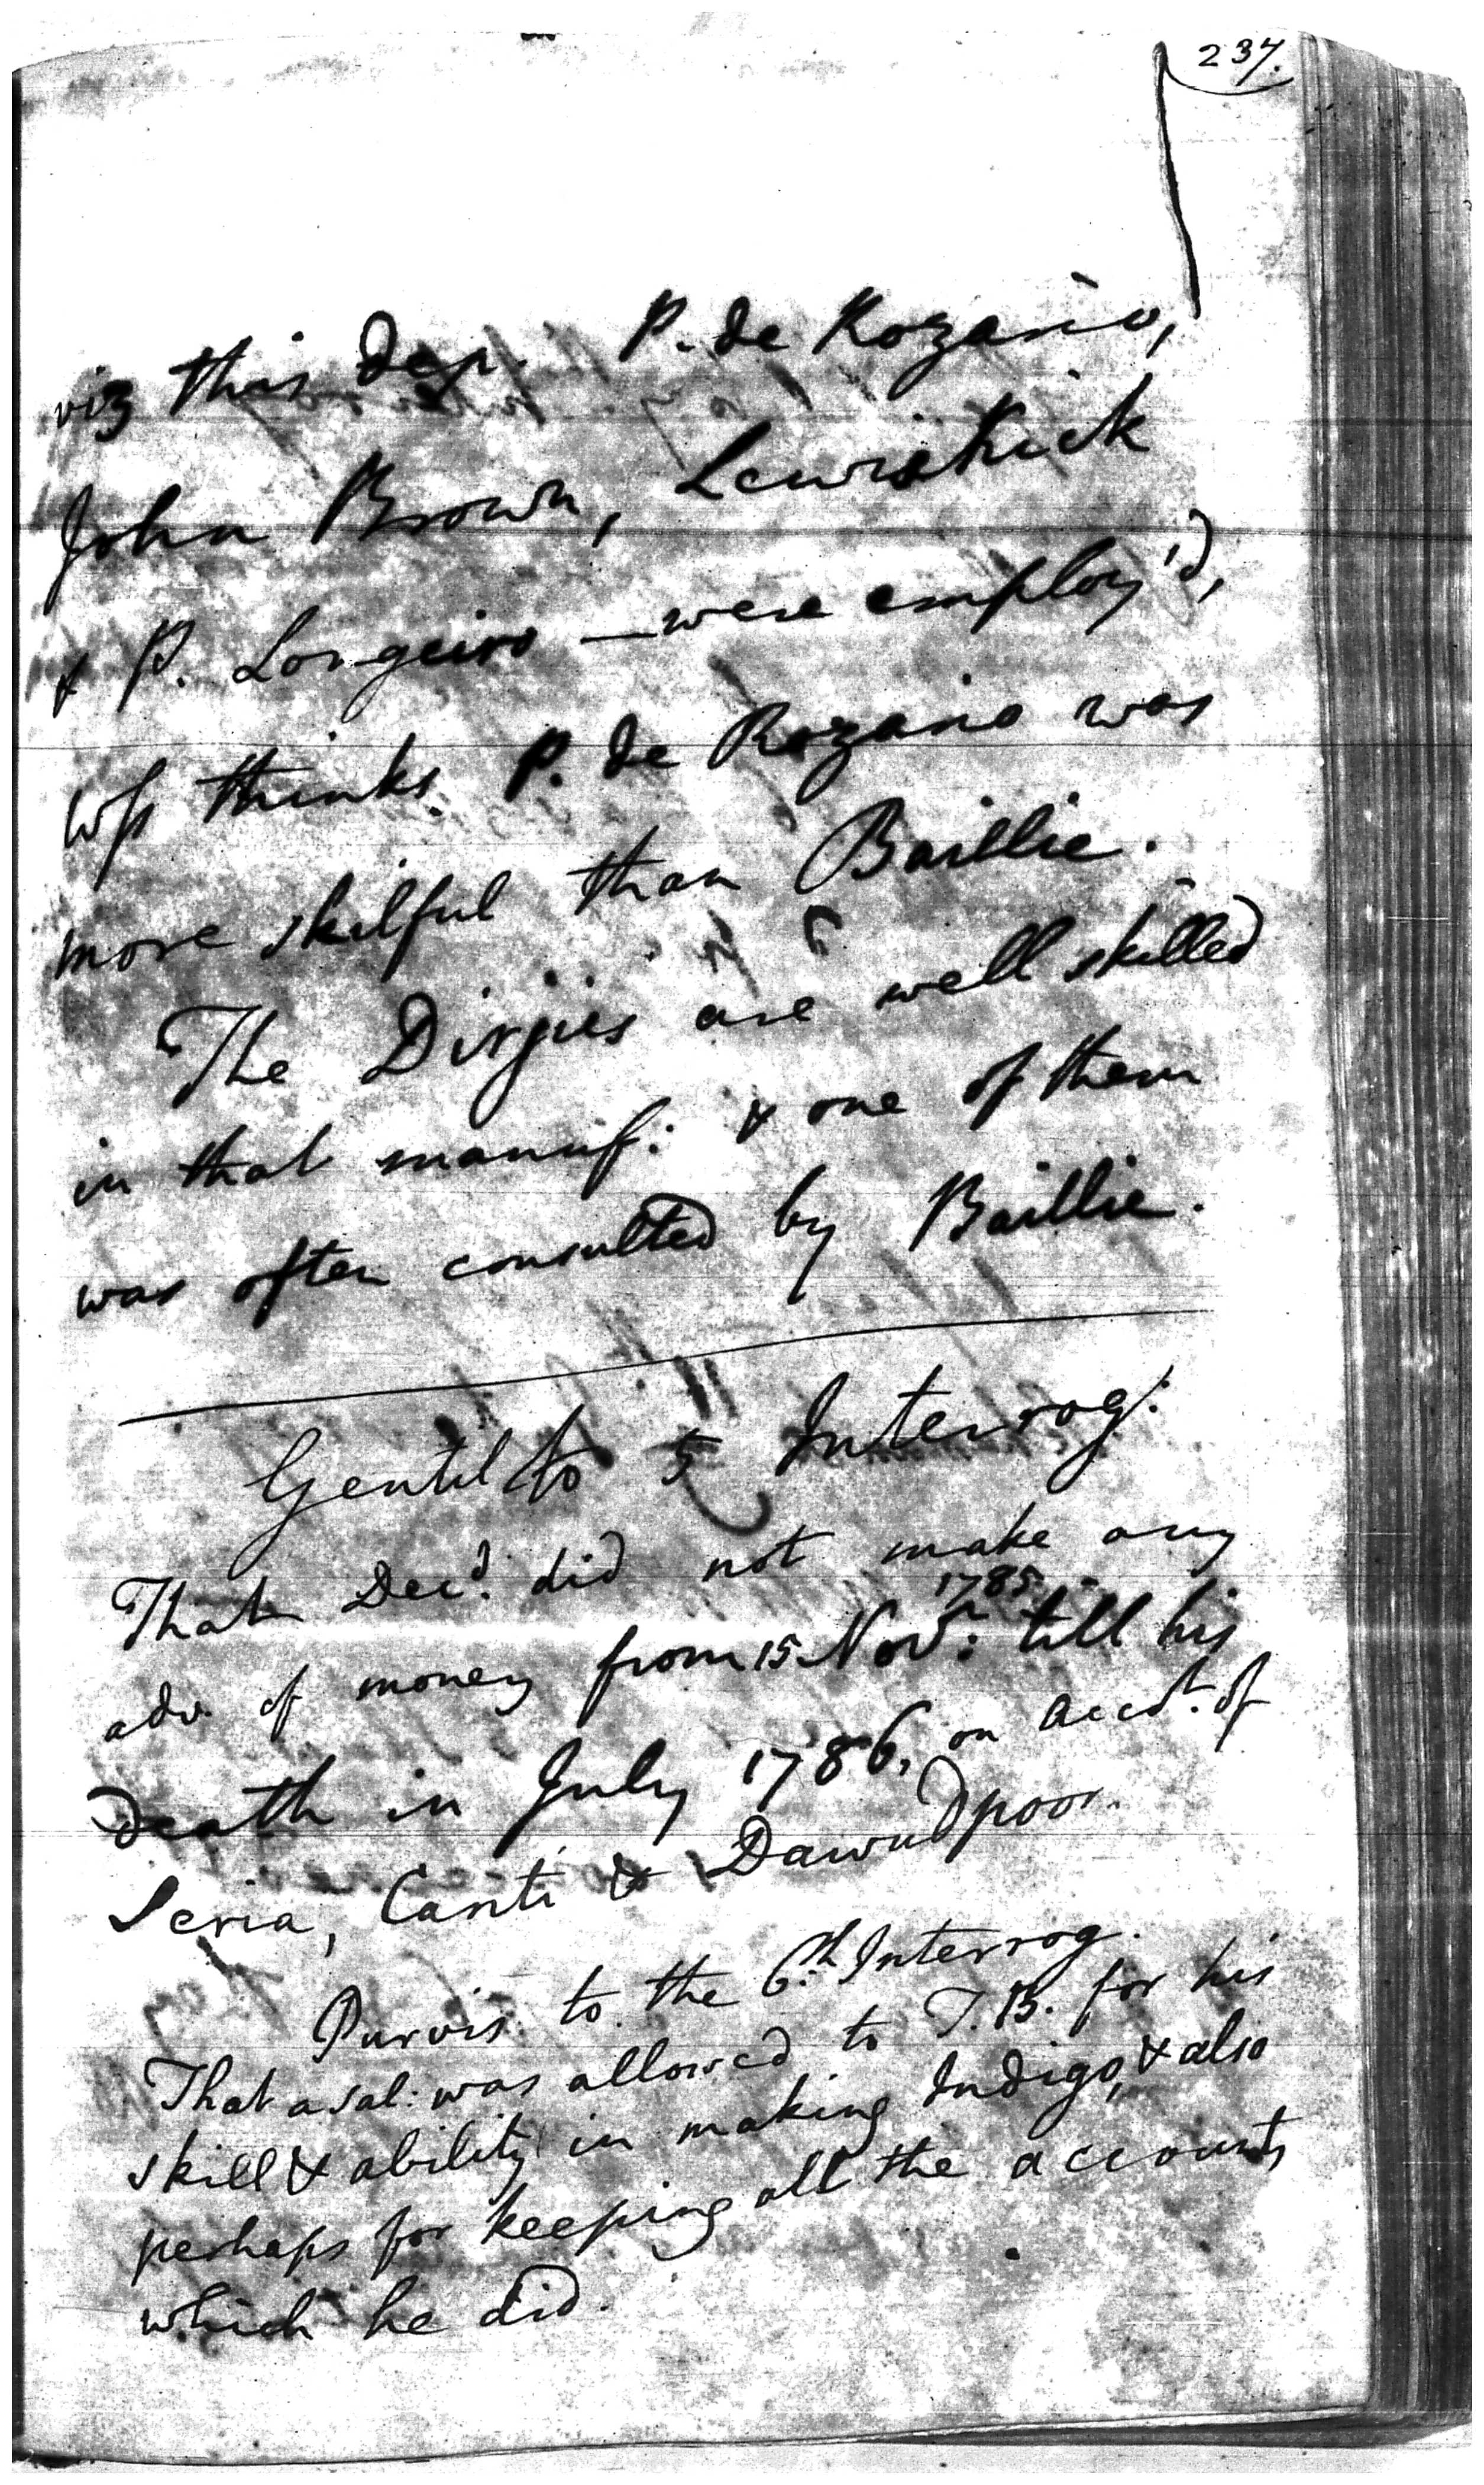 237.
viz this Dep. P. de Rozario,
John Brown, Lewis Kick
& P. Longeiro — were employ'd,
Wss thinks P. de Rozario was
more skilful than Baillie.
The Dirjies are well skilled
in that manuf: & one of them
was often consulted by Baillie.
Gentil to 5 Interrog:
That Decd. did not make any
adv. of money from 15 Novr: 1785. till his
death in July 1786, on Acct. of
Seria, Canti & Dawudpoor.
Purvis to the 6th Interrog.
That a sal: was allowed to T.B. for his
skill & ability in making Indigo, & also
perhaps for keeping all the accounts
which he did.